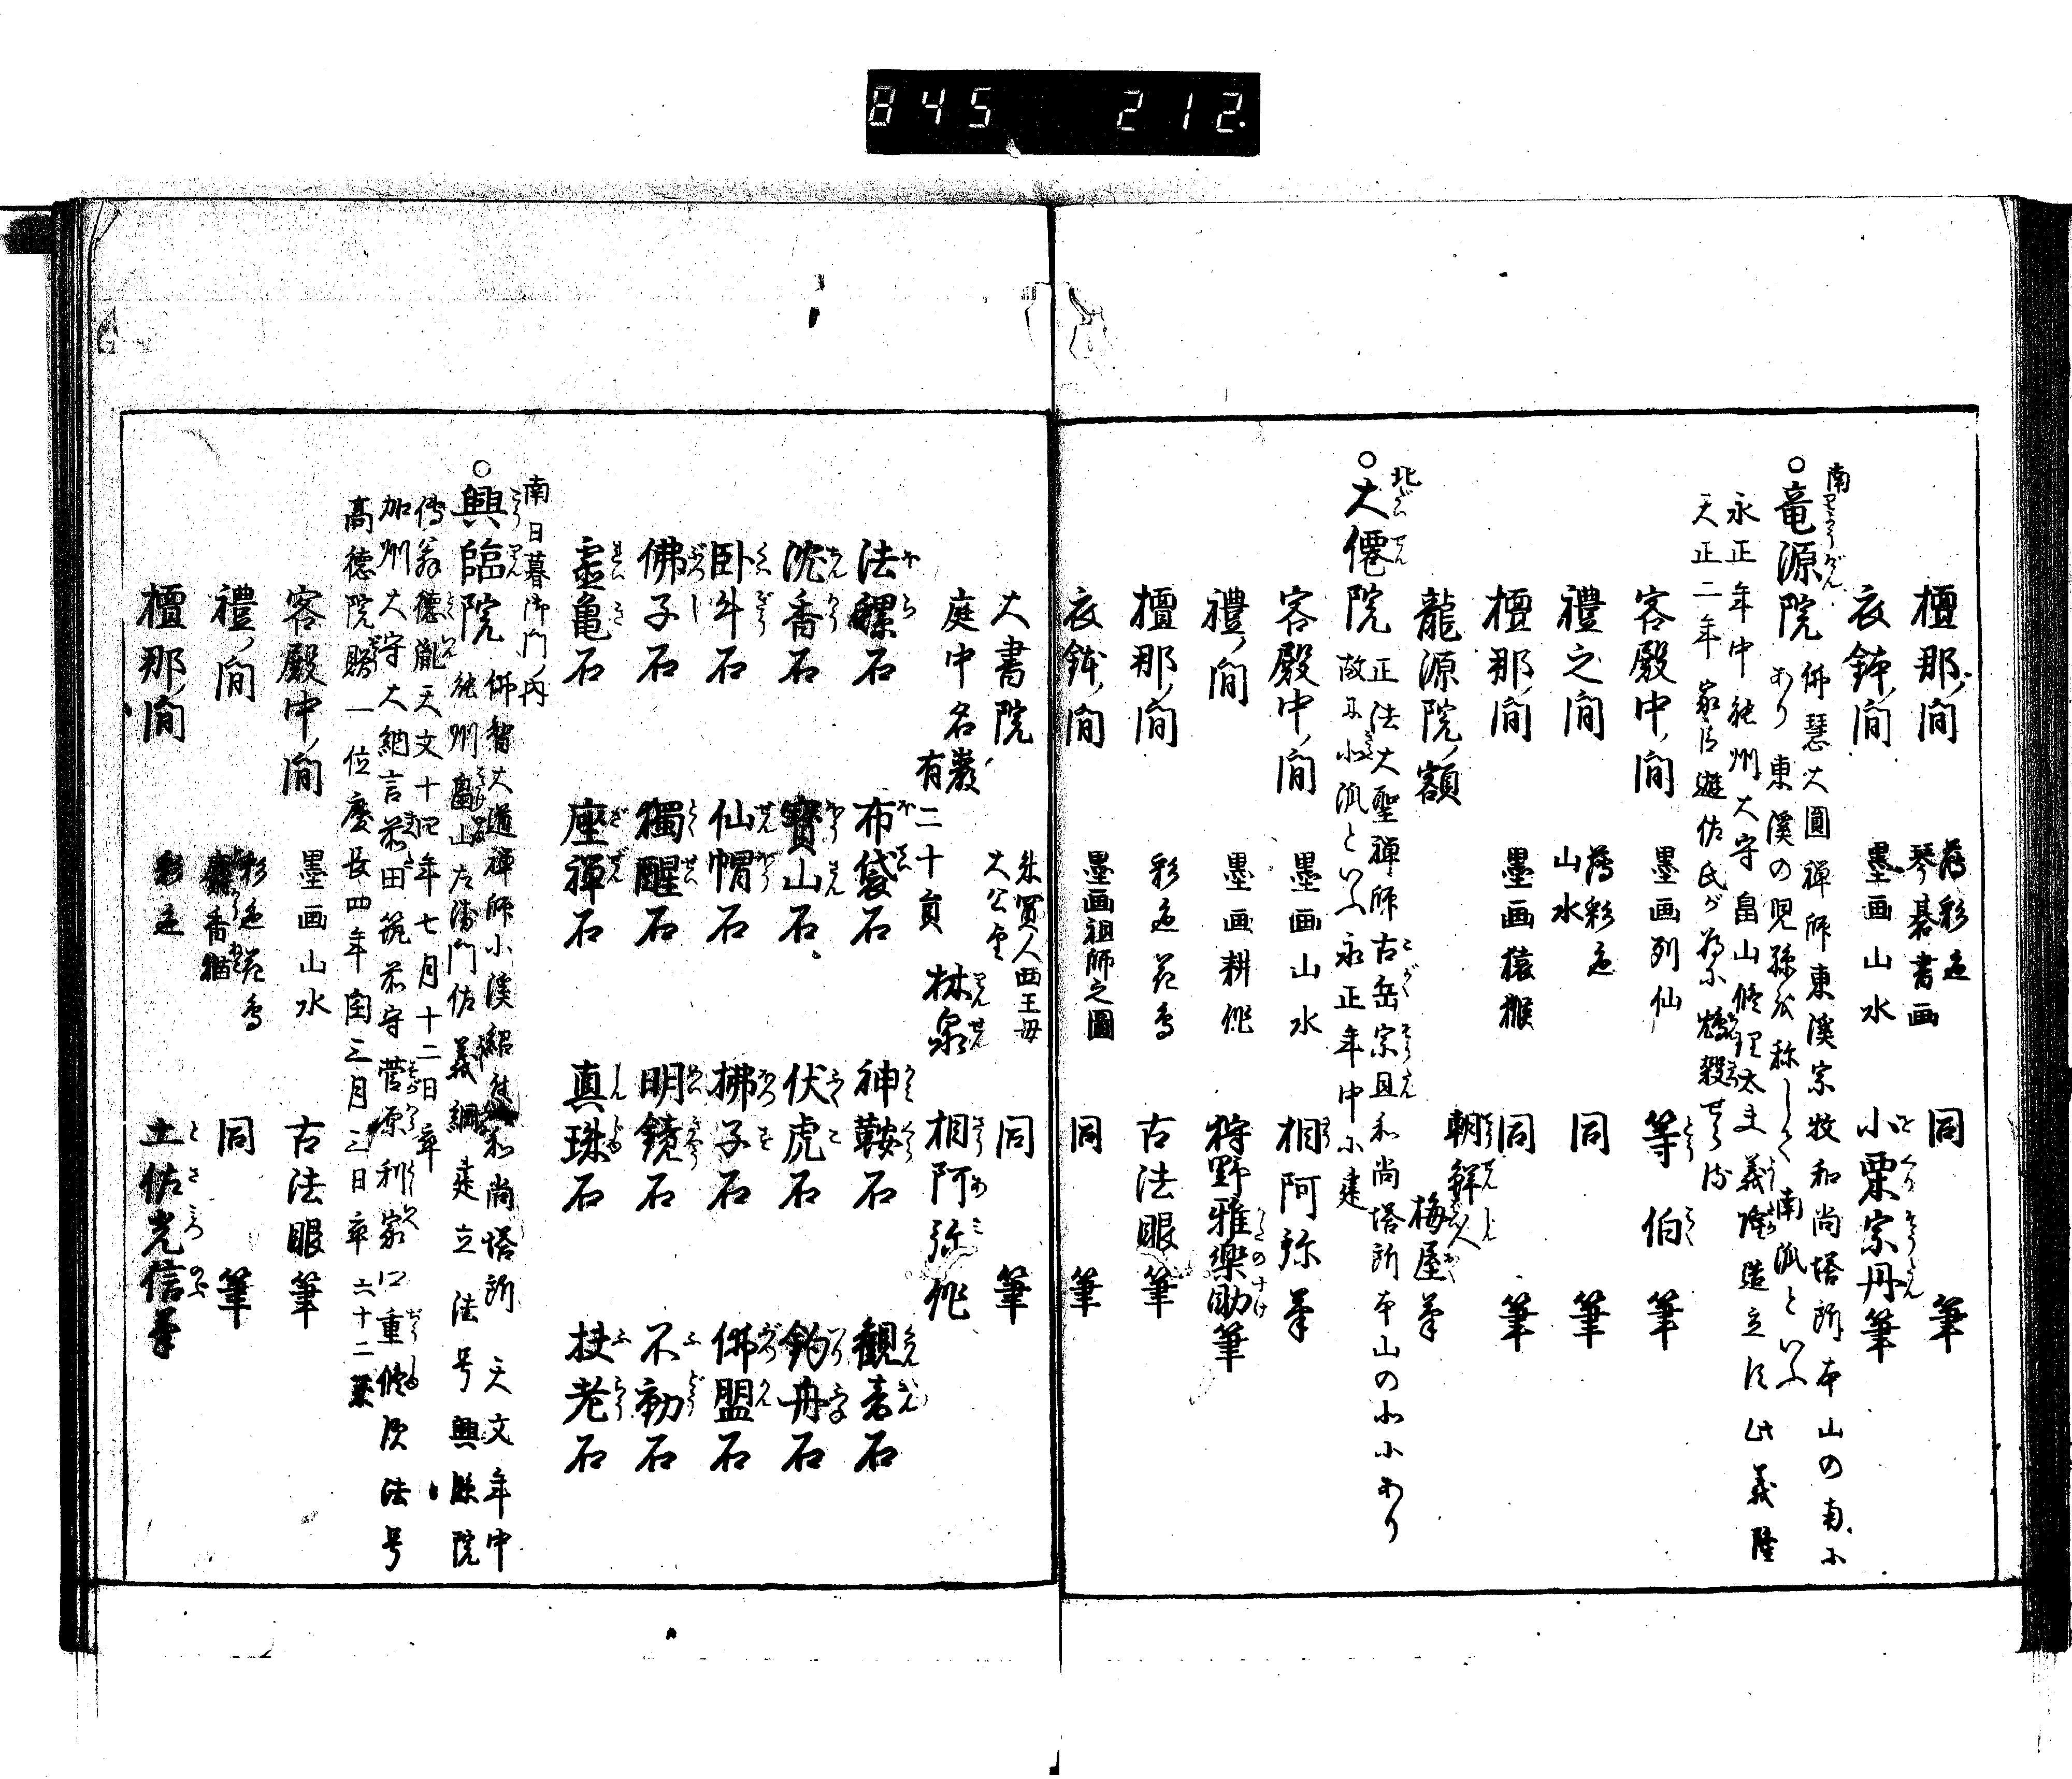 845 212.
檀那ノ間 薄彩色 琴碁書画 同筆
衣鉢ノ間 墨画山水 小栗宗丹筆
南
○竜源院 佛慧大圓禅師東溪宗牧和尚塔所本山の南に
あり東溪の児孫を称して南派といふ
永正年中能州大守畠山修理太夫義隆造立す此義隆
天正二年家臣遊佐氏が為に鴆殺せらる
客殿中ノ間 墨画列仙 等伯筆
禮之間 薄彩色 山水 同筆
檀那ノ間 墨画猿猴 同筆
龍源院ノ額 朝鮮人 梅屋筆
北
○大僊院 正法大聖禅師古岳宗亘和尚塔所本山の北にあり
故に北派といふ永正年中に建
客殿中ノ間 墨画山水 相阿弥筆
禮ノ間 墨画耕作 狩野雅樂助筆
檀那ノ間 彩色花鳥 古法眼筆
衣鉢ノ間 墨画祖師之圖 同筆
大書院 朱買人西王母 大公望 同筆
庭中名巖有二十員 林泉 相阿弥作
法螺石 布袋石 神鞍石 観音石
沈香石 寶山石 伏虎石 釣舟石
臥牛石 仙帽石 拂子石 佛盟石
佛子石 獨醒石 明鏡石 不動石
霊亀石 座禅石 真珠石 扶老石
南日暮御門ノ内
○興臨院 佛智大道禅師小溪紹 和尚塔所 天文年中
能州畠山左衛門佐義綱建立法号興臨院
傳翁德胤天文十四年七月十二日卒
加州大守大納言前田筑前守菅原利家 重修 法号
高德院 一位慶長四年閏三月三日卒六十二歳
客殿中ノ間 墨画山水 古法眼筆
禮ノ間 彩色花鳥 麝香猫 同筆
檀那ノ間 彩色 土佐光信筆